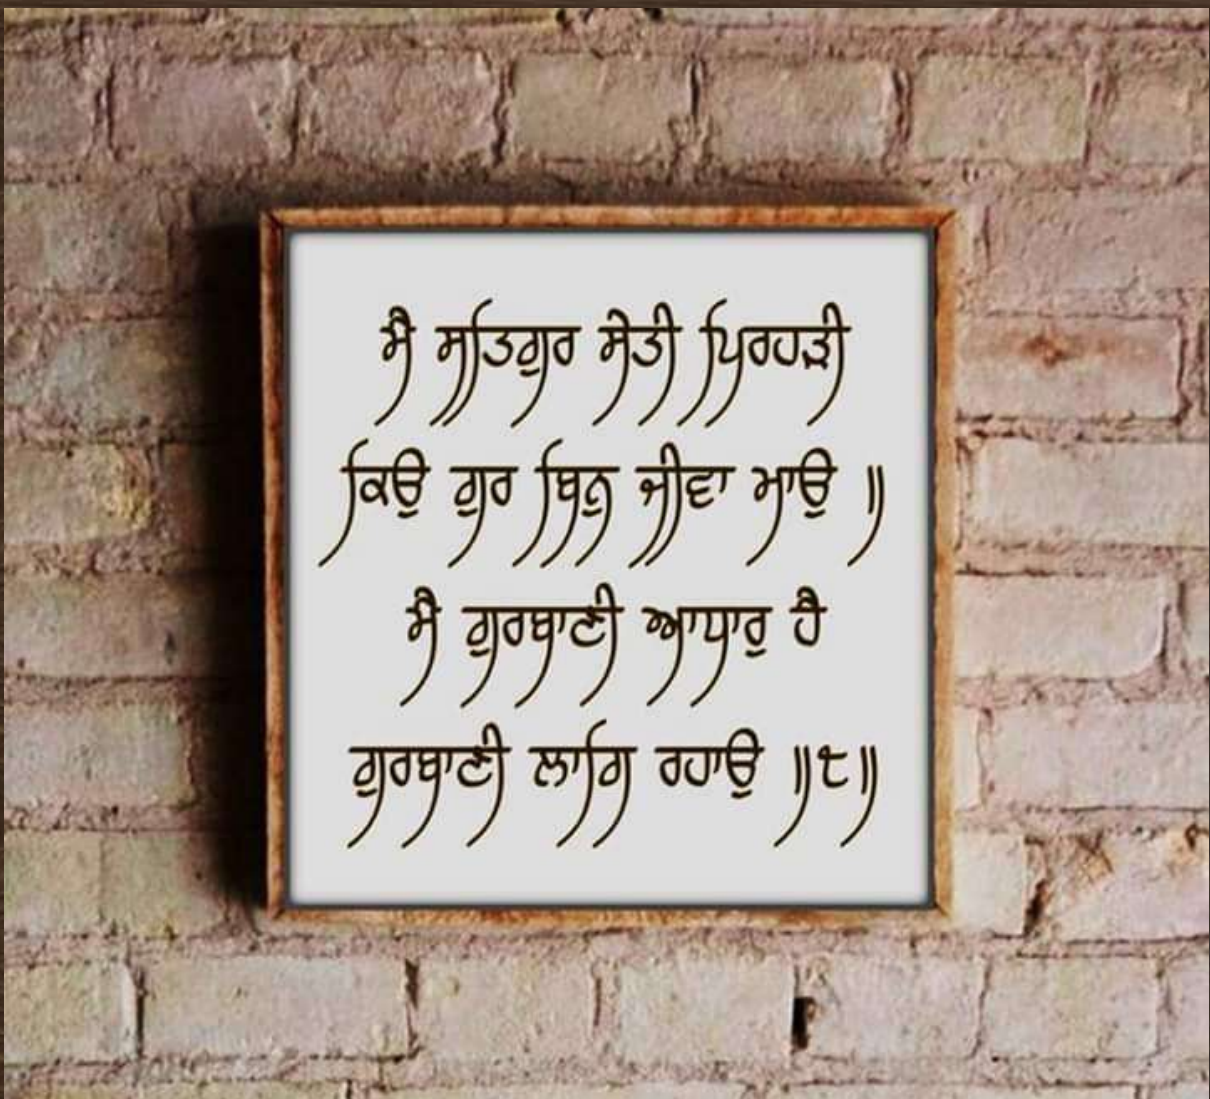 ਮੈ ਸਤਿਗੁਰ ਸੇਤੀ ਪਿਰਹੜੀ
ਕਿਉ ਗੁਰ ਬਿਨੁ ਜੀਵਾ ਮਾਉ ॥
ਮੈ ਗੁਰਬਾਣੀ ਆਧਾਰੁ ਹੈ
ਗੁਰਬਾਣੀ ਲਾਗਿ ਰਹਾਉ ॥੮॥